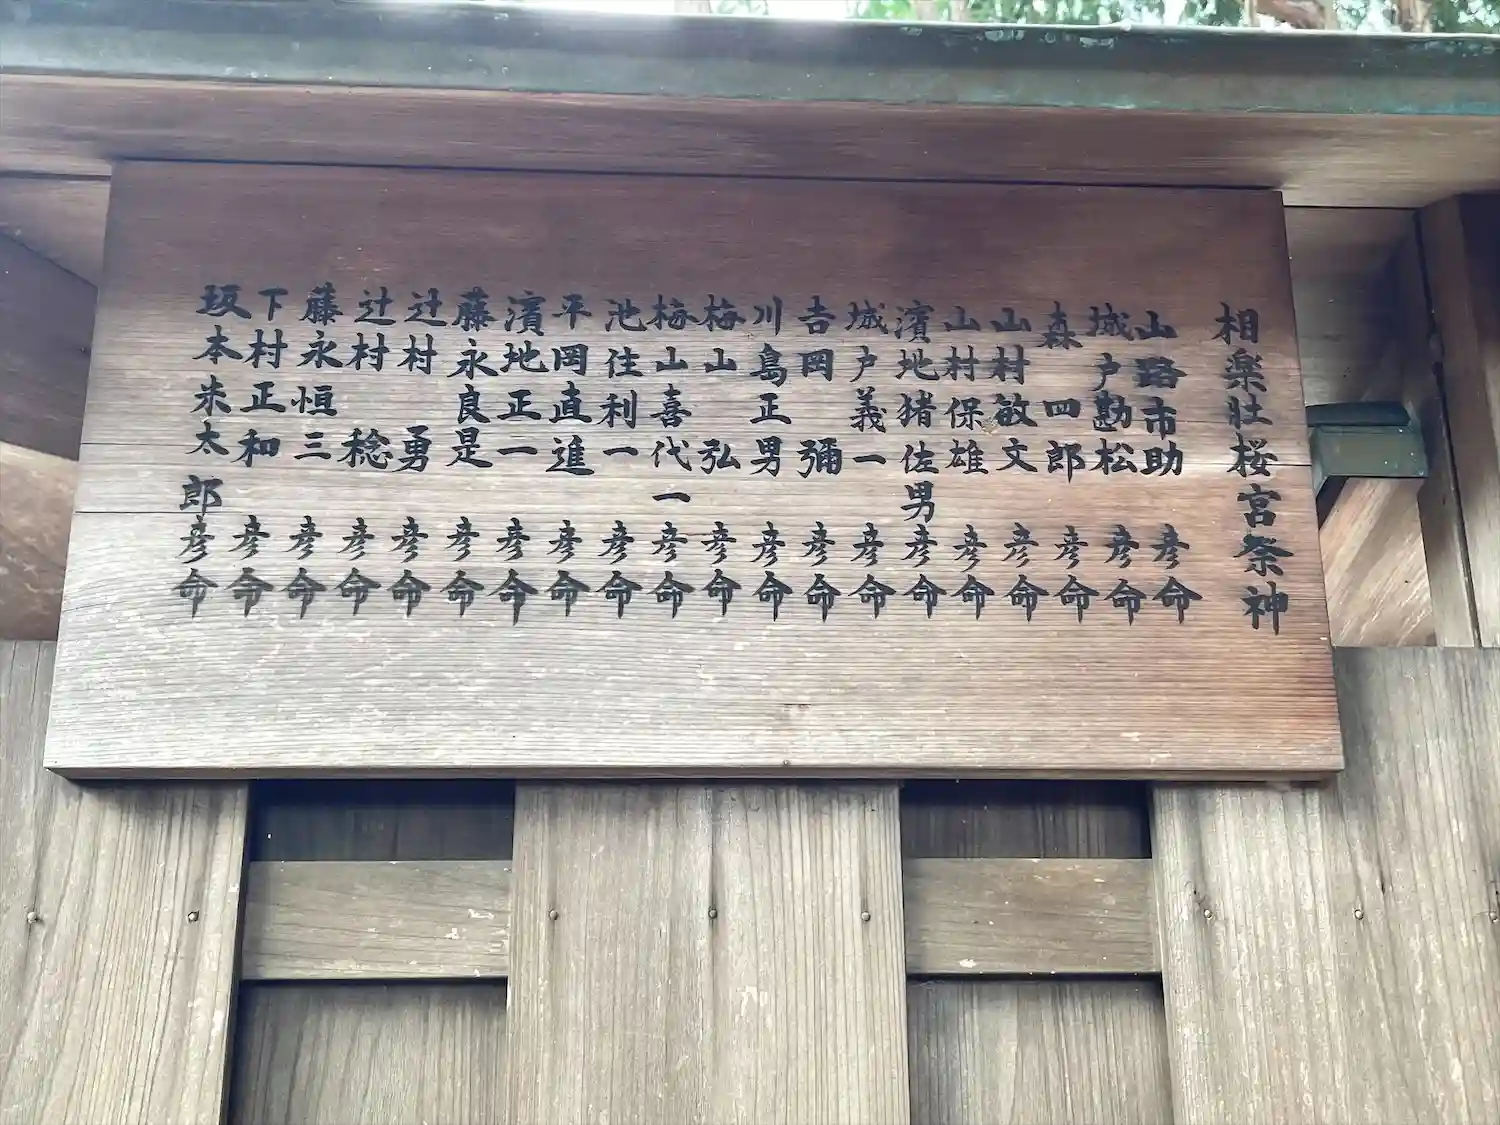 相楽壮桜宮祭神
山路市助彦命
城戸勘松彦命
森四郎彦命
山村敏文彦命
山村保雄彦命
濱地猪佐男彦命
城戸義一彦命
吉岡彌彦命
川島正男彦命
梅山弘彦命
梅山喜代一彦命
池住利一彦命
平岡直進彦命
濱地正一彦命
藤永良是彦命
辻村勇彦命
辻村稔彦命
藤永恒三彦命
下村正和彦命
坂本米太郎彦命